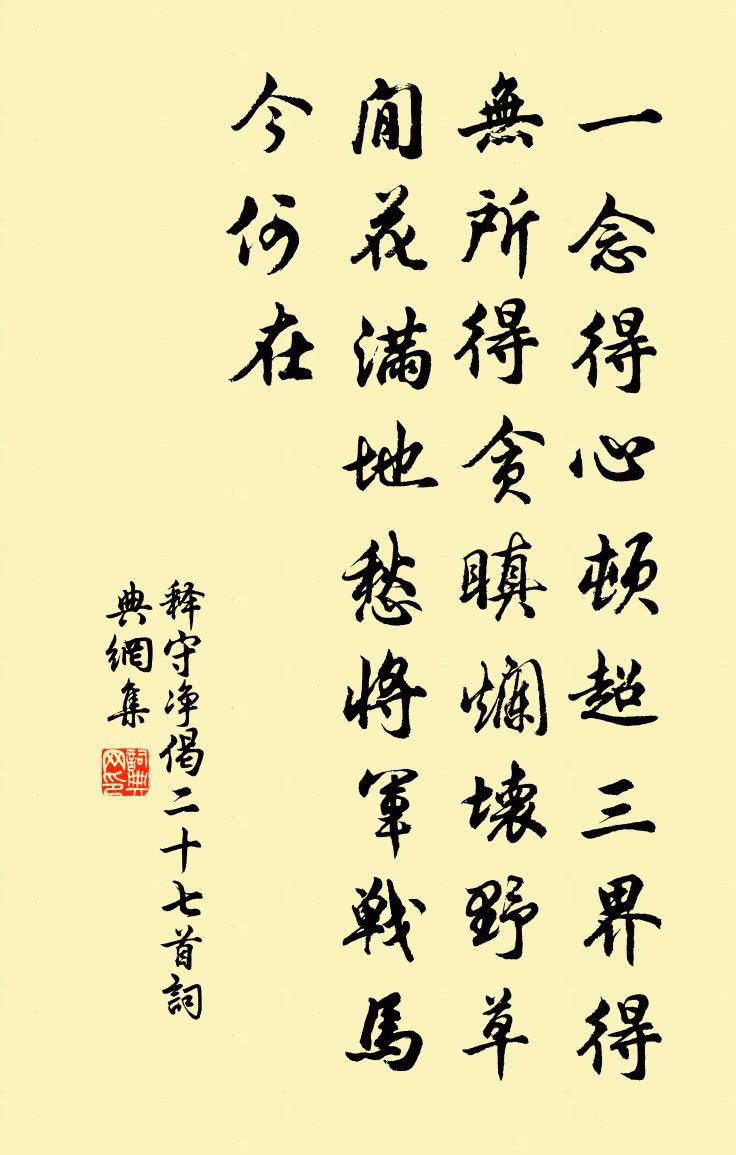 一念得心頓超三界得
無所得貪瞋爛壞野草
閒花滿地愁將軍戰馬
今何在
释守净偈二十七首詞
典網集
詞典網印